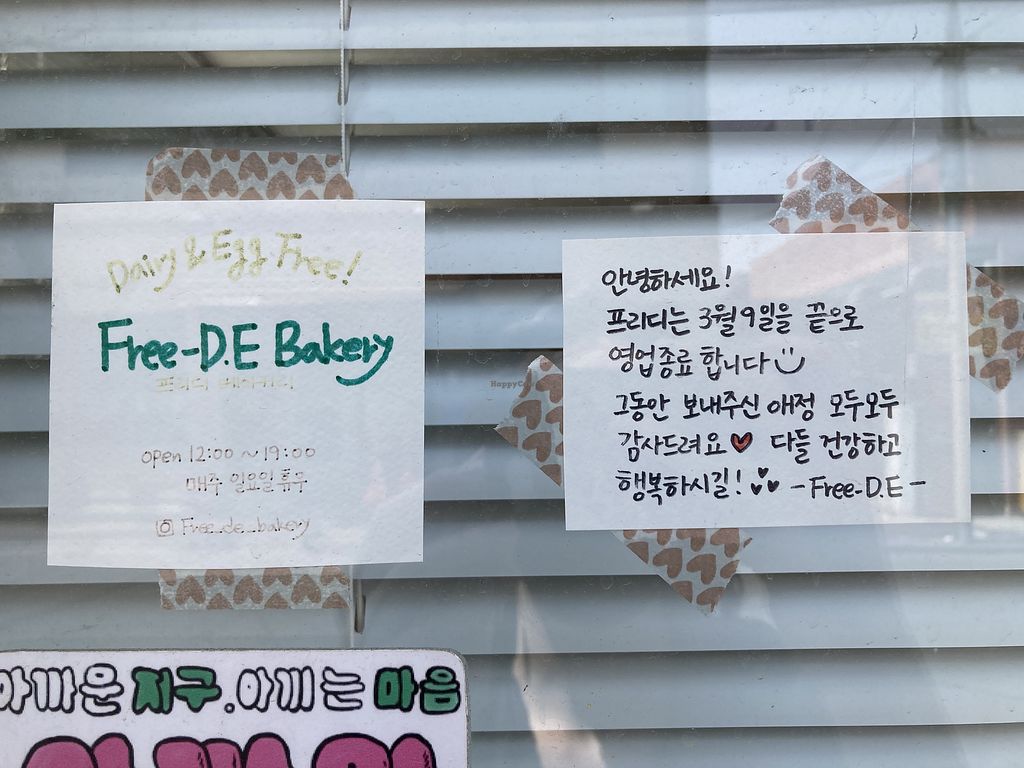 Dairy & Egg Free!
Free-D.E Bakery
프리디 베이커리
open 12:00 ~ 19:00
매주 일요일 휴무
Free_de_bakery
안녕하세요!
프리디는 3월 9일을 끝으로
영업종료 합니다
그동안 보내주신 애정 모두모두
감사드려요 다들 건강하고
행복하시길! -Free-D.E-
HappyCow
아까운 지구. 아끼는 마음